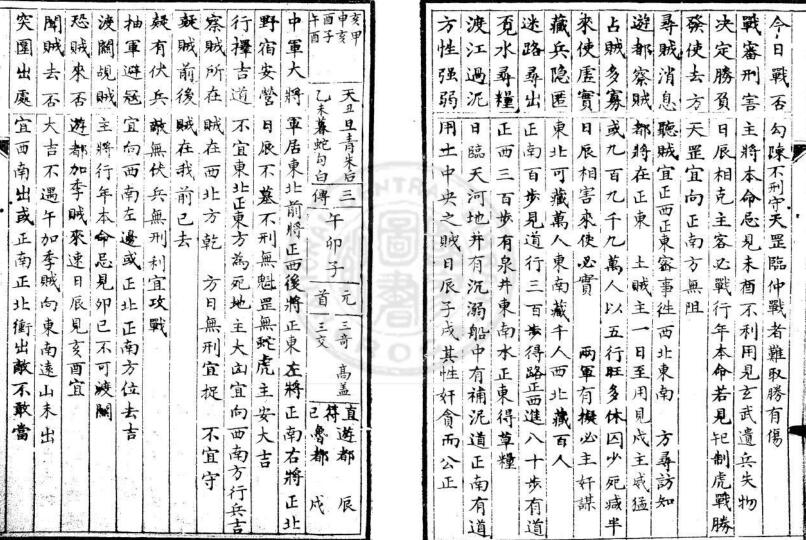 今日戰否 勾陳不刑守天罡臨仲戰者難取勝有傷
戰審刑害 主將本命忌見未酉不利用見玄武遺兵失物
決定勝負 日辰相克主客必戰行年本命若見 制虎戰勝
發使去方 天罡宜向正南方無阻
尋賊消息 聽賊宜正西正東審事徃西北東南 方尋訪知
遊都察賊 都將在正東 土賊主一日至用見戌主戚猛
占賊多寡 或九百九千九萬人以五行旺多休囚少死减半
來使虛實 日辰相害來使必實 兩軍有 必主奸謀
藏兵隐匿 東北可藏萬人東南藏千人西北藏百人
迷路尋出 正南百步見道行三百步得路正西進八十步有道
覓水尋糧 正西三百步有泉井東南水正東得草糧
渡江過泥 日臨天河地井有沉溺船中有補泥道正南有道
方性强弱 用土中央之賊日辰子戌其性奸貪而公正
亥甲
申亥
酉子
午酉
天丑旦青朱后三
乙未暮蛇勾白傳
午卯子
元首
三奇
三交
高盖
直符
巳
遊都 辰
魯都 戌
中軍大將 軍居東北前將正西後將正東左將正南右將正北
野宿安營 日辰不墓不刑無魁罡無蛇虎主安大吉
行擇吉道 不宜東北正東方為死地主大凶宜向西南方行兵吉
察賊所在 賊在西北方乾 方日無刑宜捉 不宜守
疑賊前後 賊在我前已去
疑有伏兵 敵無伏兵無刑利宜攻戰
抽軍避冦 宜向西南左邊或正北正南方位去吉
渡關覘賊 主將行年本命忌見卯巳不可渡關
恐賊來否 遊都加季賊來速日辰見亥酉宜
聞賊去否 大吉不遇午加季賊向東南遠山未出
突圍出處 宜西南出或正南正北衝出敵不敢當